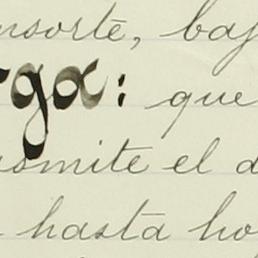 nsorte, baj
rga: que
nsmite el d
hasta ho